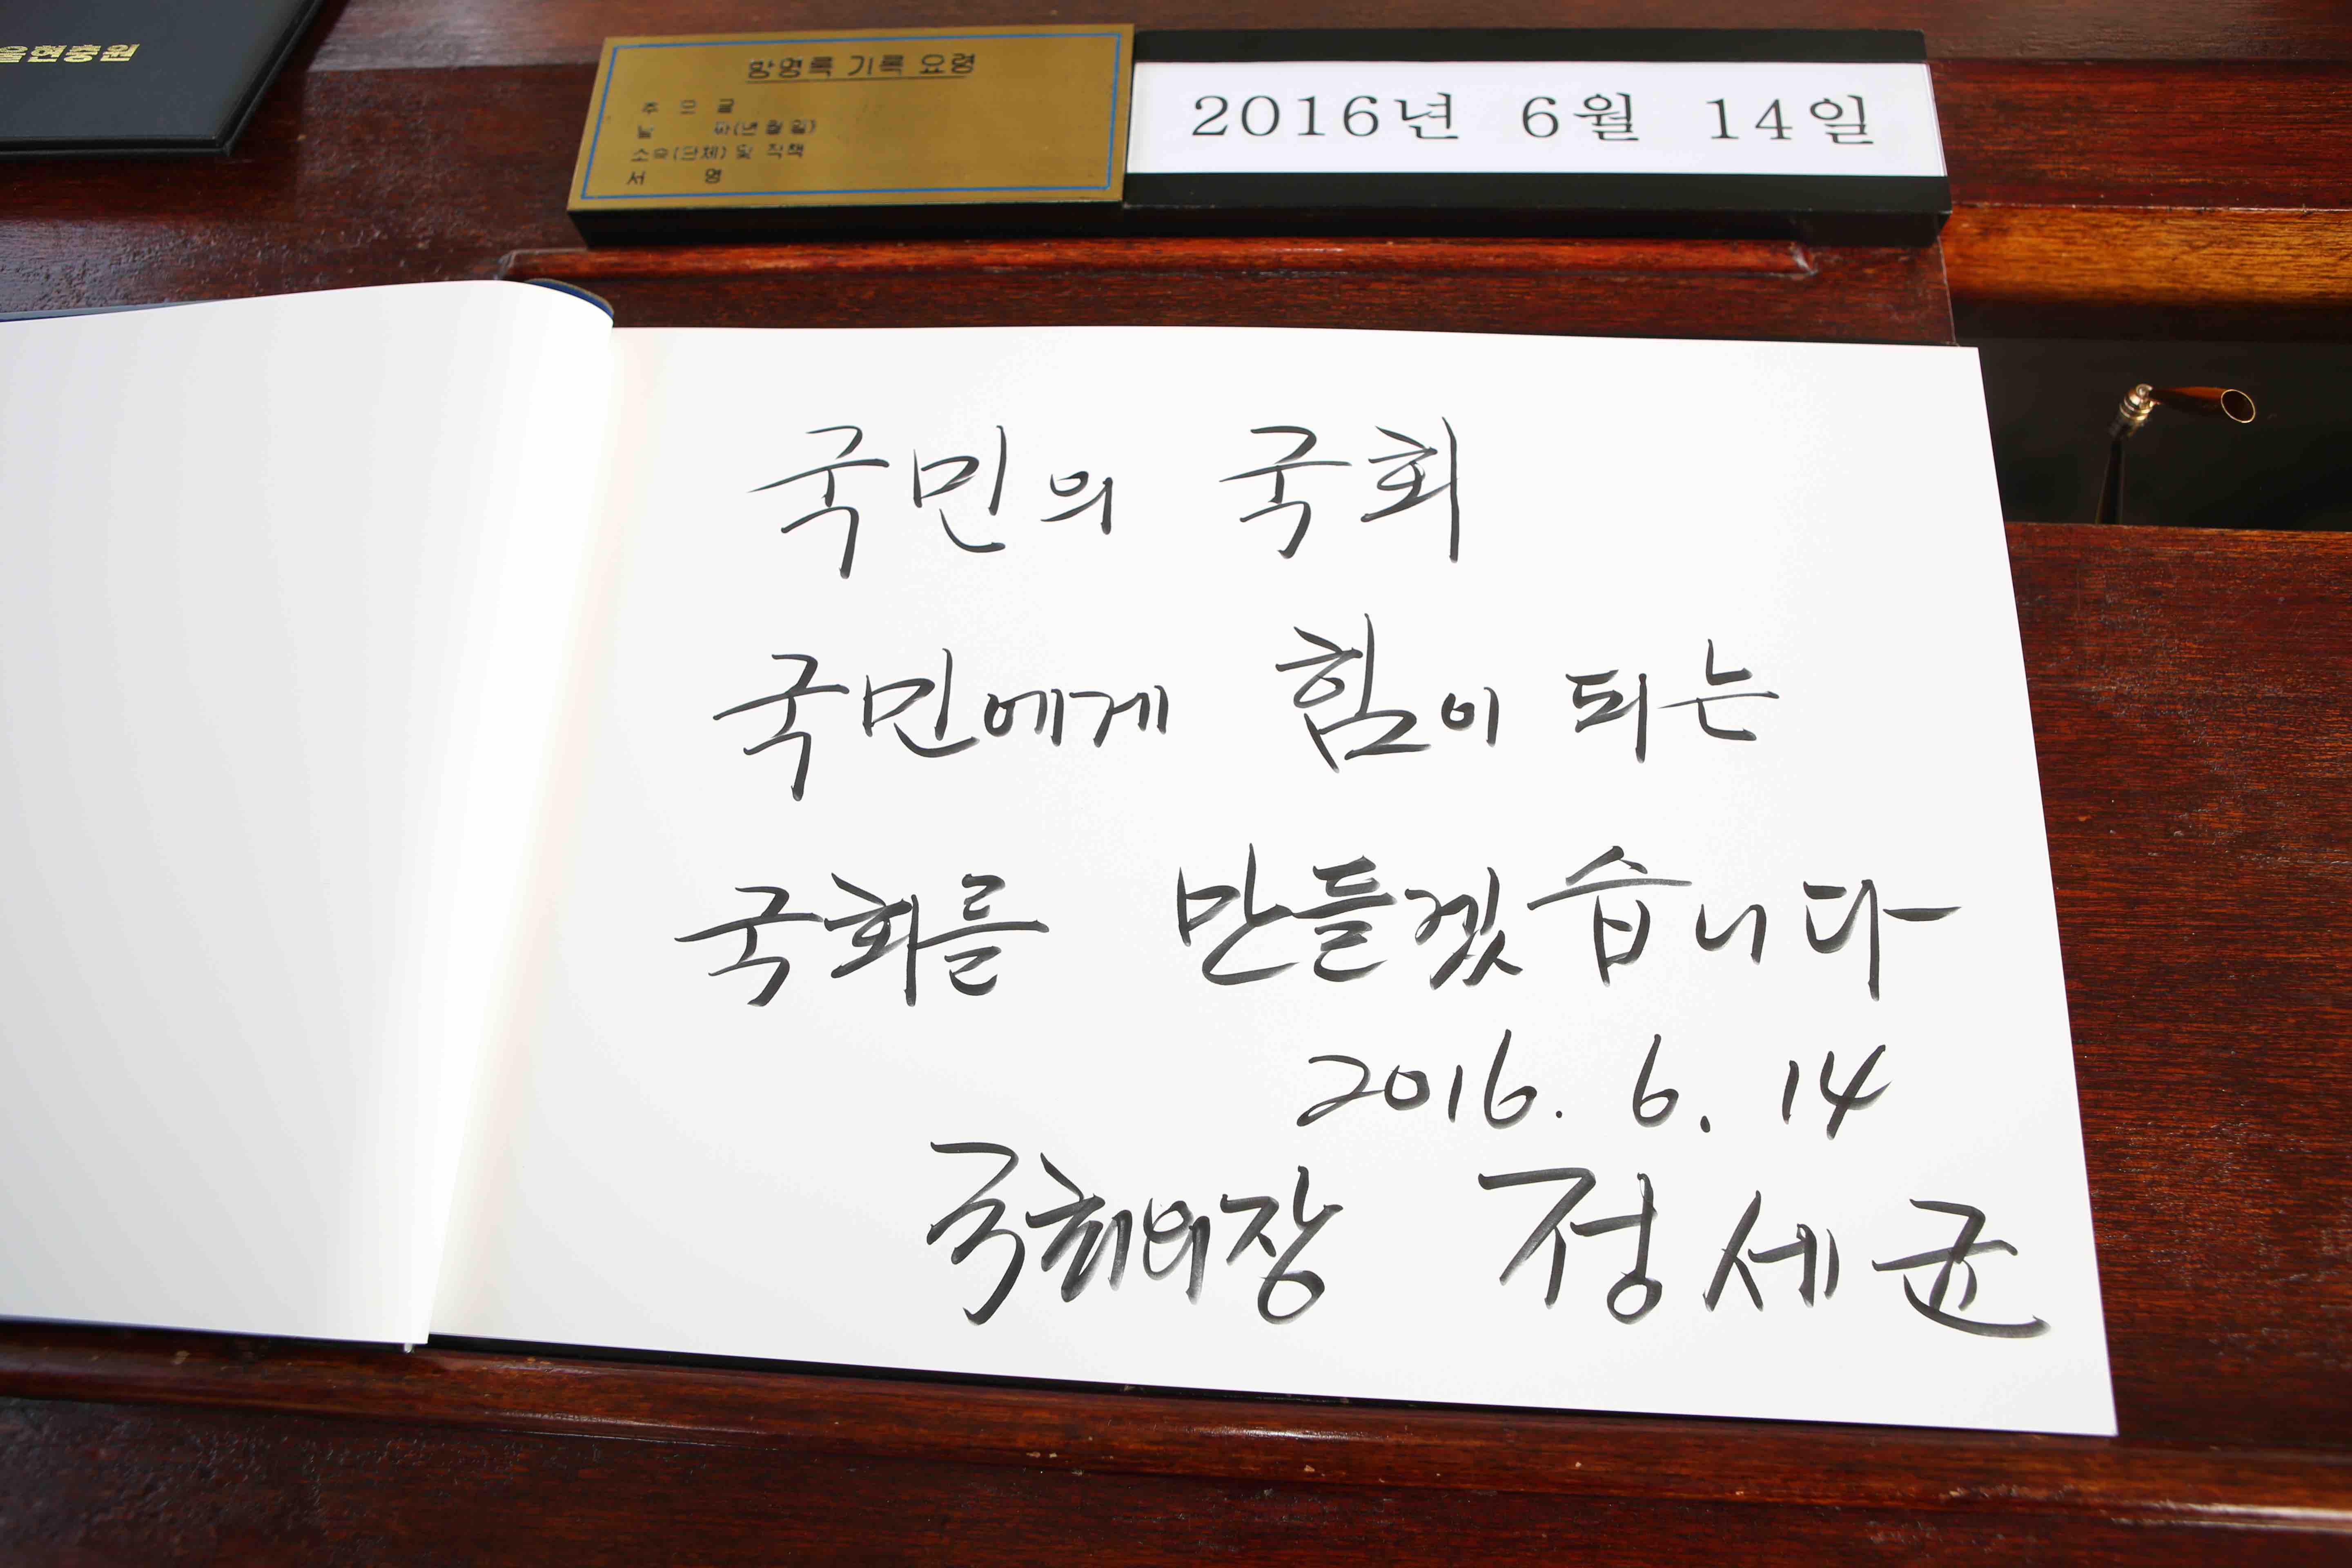 울현충원
방명록 기록 요령
추 모 글
날 짜(년월일)
소속(단체) 및 직책
서 명
2016년 6월 14일
국민의 국회
국민에게 힘이 되는
국회를 만들겠습니다
2016. 6. 14
국회의장 정세균